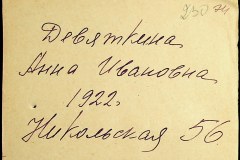 230 74
Девяткина
Анна Ивановна
1922.
Никольская 56